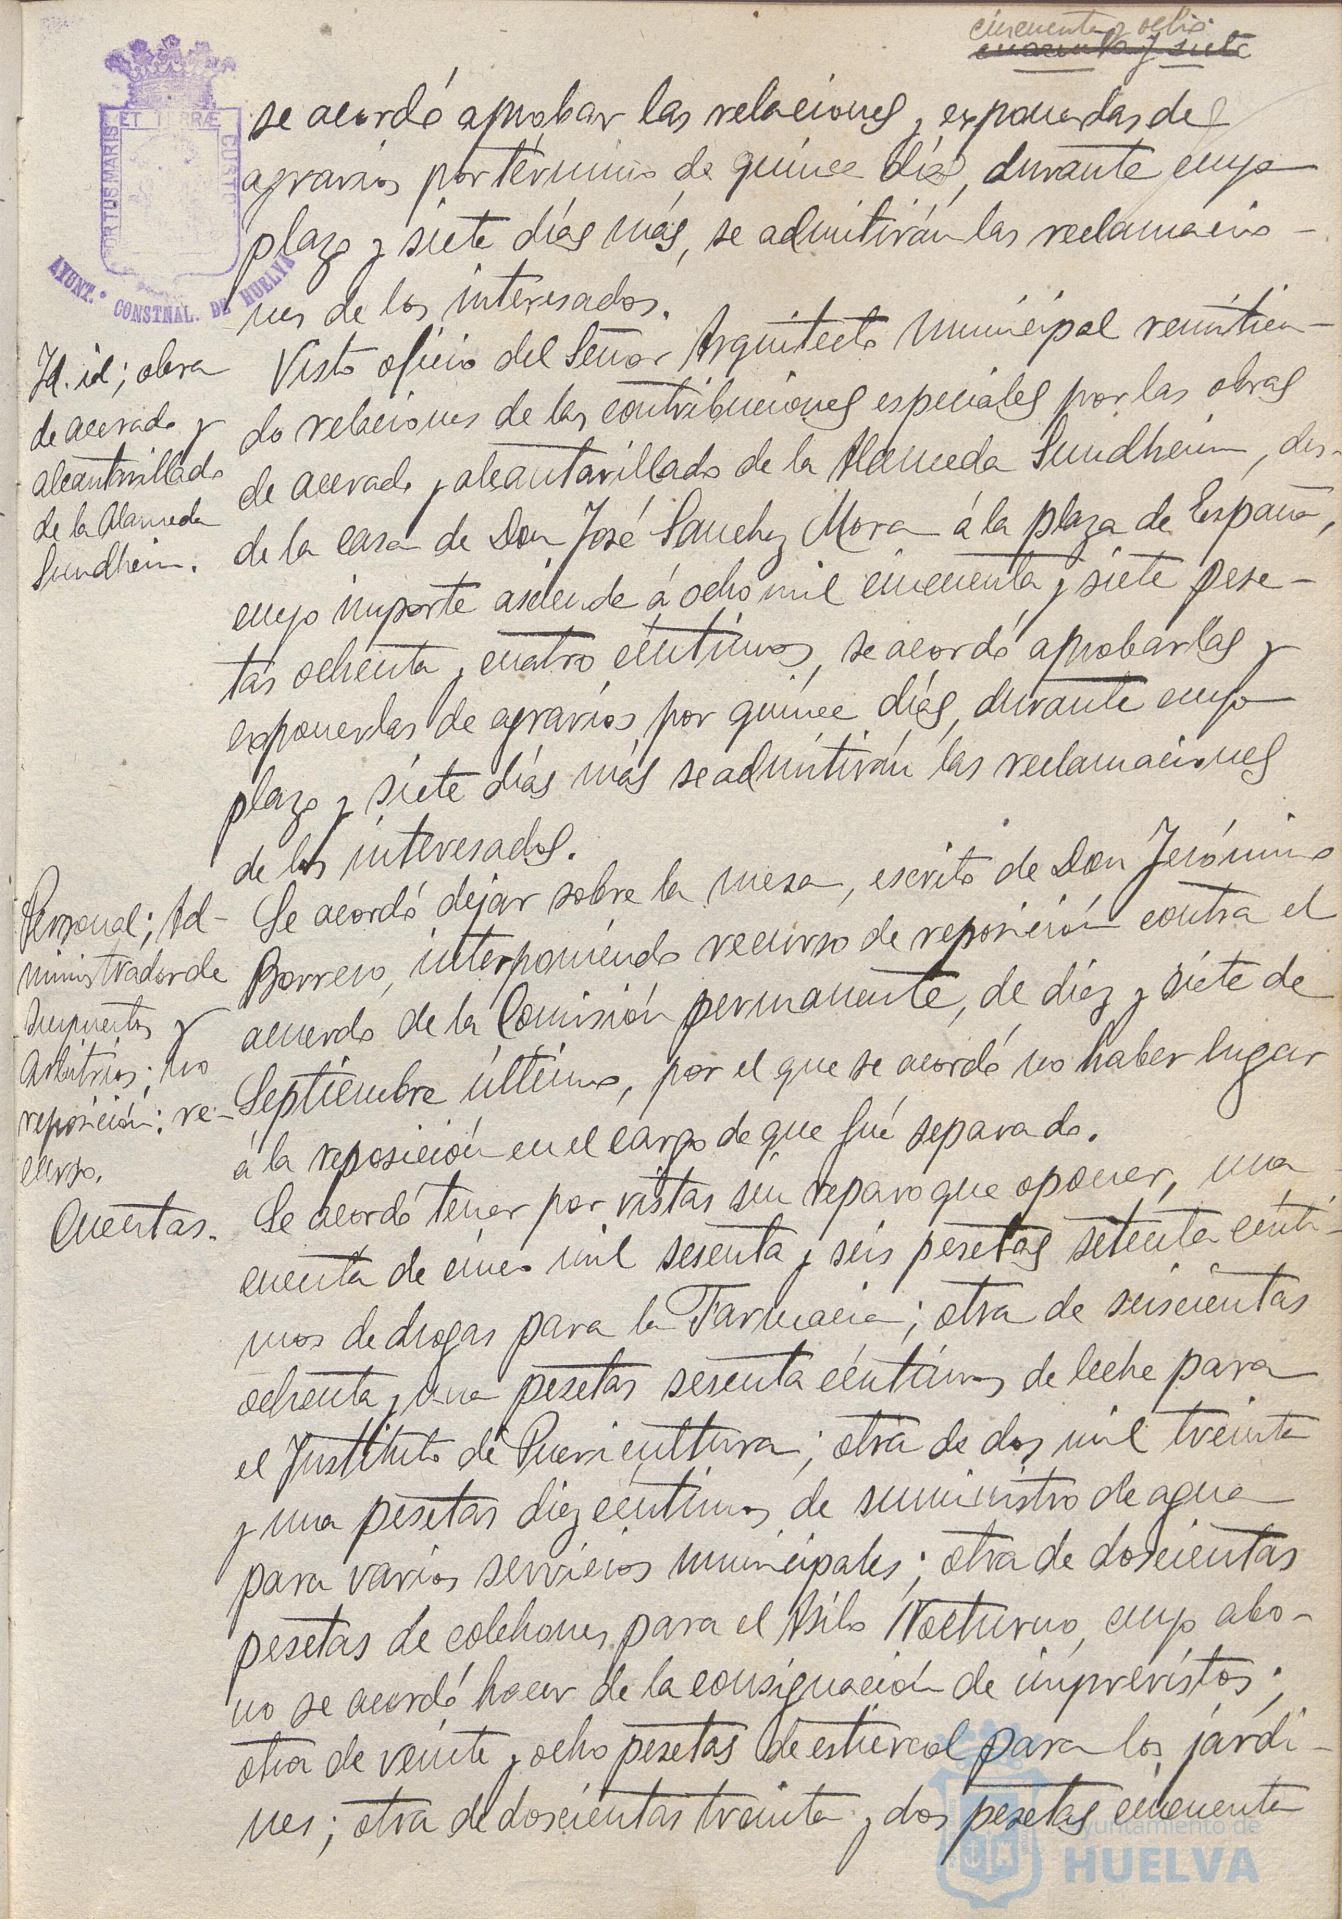 cincuenta y ocho.
cuarenta y siete
PORTUS MARIS ET TERRÆ CUSTO
AYUNT.º CONSTNAL. DE HUELVA
se acordó aprobar las relaciones y exponerlas de
agravios por término de quince días, durante cuyo
plazo y siete días más, se admitirán las reclamacio-
nes de los interesados.
Id. id; obra
de acerado y
alcantarillado
de la Alameda
Sundheim.
Visto oficio del Señor Arquitecto Municipal remitien-
do relaciones de las contribuciones especiales por las obras
de acerado y alcantarillado de la Alameda Sundheim, des-
de la casa de Don José Sanchez Mora á la plaza de España,
cuyo importe asciende á ocho mil cincuenta y siete pese-
tas ochenta y cuatro céntimos, se acordó aprobarlas y
exponerlas de agravios por quince días, durante cuyo
plazo y siete días más se admitirán las reclamaciones
de los interesados.
Personal; Ad-
ministrador de
Impuestos y
Arbitrios; no
reposición; re-
curso.
Se acordó dejar sobre la mesa, escrito de Don Jerónimo
Borrero, interponiendo recurso de reposición contra el
acuerdo de la Comisión permanente, de diez y siete de
Septiembre último, por el que se acordó no haber lugar
á la reposición en el cargo de que fué separado.
Cuentas.
Se acordó tener por vistas sin reparo que oponer, una
cuenta de cinco mil sesenta y seis pesetas setenta cénti-
mos de drogas para la Farmacia; otra de seiscientas
ochenta y una pesetas sesenta céntimos de leche para
el Instituto de Puericultura; otra de dos mil treinta
y una pesetas diez céntimos de suministro de agua
para varios servicios municipales; otra de doscientas
pesetas de colchones para el Asilo Nocturno, cuyo abo-
no se acordó hacer de la consignación de imprevistos;
otra de veinte y ocho pesetas de estiercol para los jardi-
nes; otra de doscientas treinta y dos pesetas cincuenta
Ayuntamiento de
HUELVA